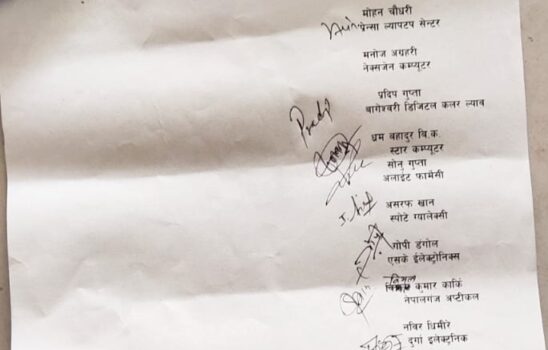 मोहन चौधरी
प्रेन्सा ल्यापटप सेन्टर
मनोज अग्रहरी
नेक्सजेन कम्प्यूटर
प्रदिप गुप्ता
बागेश्वरी डिजिटल कलर ल्याव
प्रम बहादुर बि.क.
स्टार कम्प्यूटर
सोनु गुप्ता
अलाइट फार्मेसी
असरफ खान
स्पोर्ट ग्यालेक्सी
गोपी डंगोल
एसके ईलेक्ट्रोनिक्स
विमल कुमार कार्कि
नेपालगंज अप्टीकल
नविर घिमीरे
दुर्गा इलेक्ट्रनिक